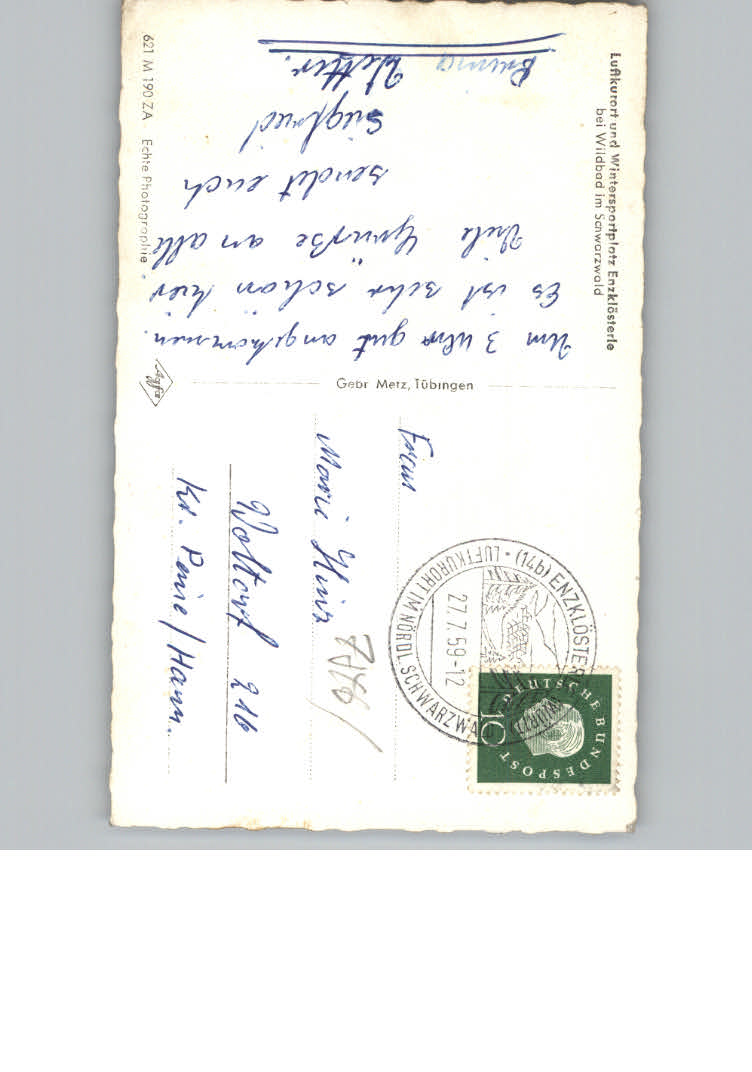 Luftkurort und Wintersportplatz Enzklösterle
bei Wildbad im Schwarzwald
Um 3 Uhr gut angekommen.
Es ist sehr schön hier
Viele Grüße an alle
sendet euch
Siegfried
Gebr. Metz, Tübingen
621 M 190 ZA Echte Photographie
Agfa
Frau
Marie Hinz
Woltorf 216
Kr. Peine/Hann.
(14b) ENZKLÖSTERLE
LUFTKURORT IM NÖRDL. SCHWARZWALD
27.7.59-12
DEUTSCHE BUNDESPOST
10